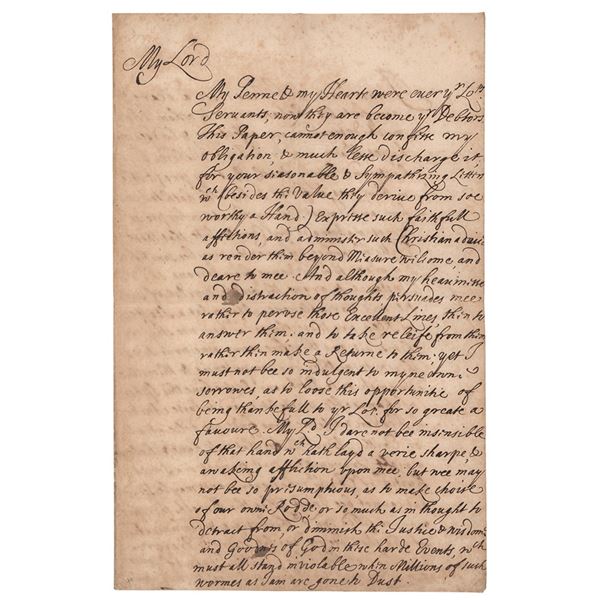 My Lord
My Penne & my Hearte were ever yr Lops
Servants, now they are become yr Debtors
This Paper, cannot enough confesse my
obligation, & much lesse discharge it
for your seasonable & Sympathizing Letter
wch (besides the Value they derive from soe
worthy a Hand) Expresse such faithfull
affections, and administer such Christian advice
as render them beyond Measure welcome and
deare to mee. And although my heavinesse
and distraction of thoughts persuades mee
rather to peruse those Excellent Lines then to
answer them. and to take releife from them
rather then make a Returne to them; yet I
must not bee so indulgent to myne own
sorrowes, as to loose this opportunitie of
being thankefull to yr Lop. for so greate a
favoure. My Ld. I dare not bee insensible
of that hand wch hath layd a verie sharpe &
awaking affliction upon mee but wee may
not bee so presumptuous, as to make choise
of our owne Rodde or so much as in thought to
detract from, or diminish the Justice & wisdome
and Goodnes of God in these harde Events, wch
must all stand inviolable when Millions of such
wormes as I am are gone to Dust.